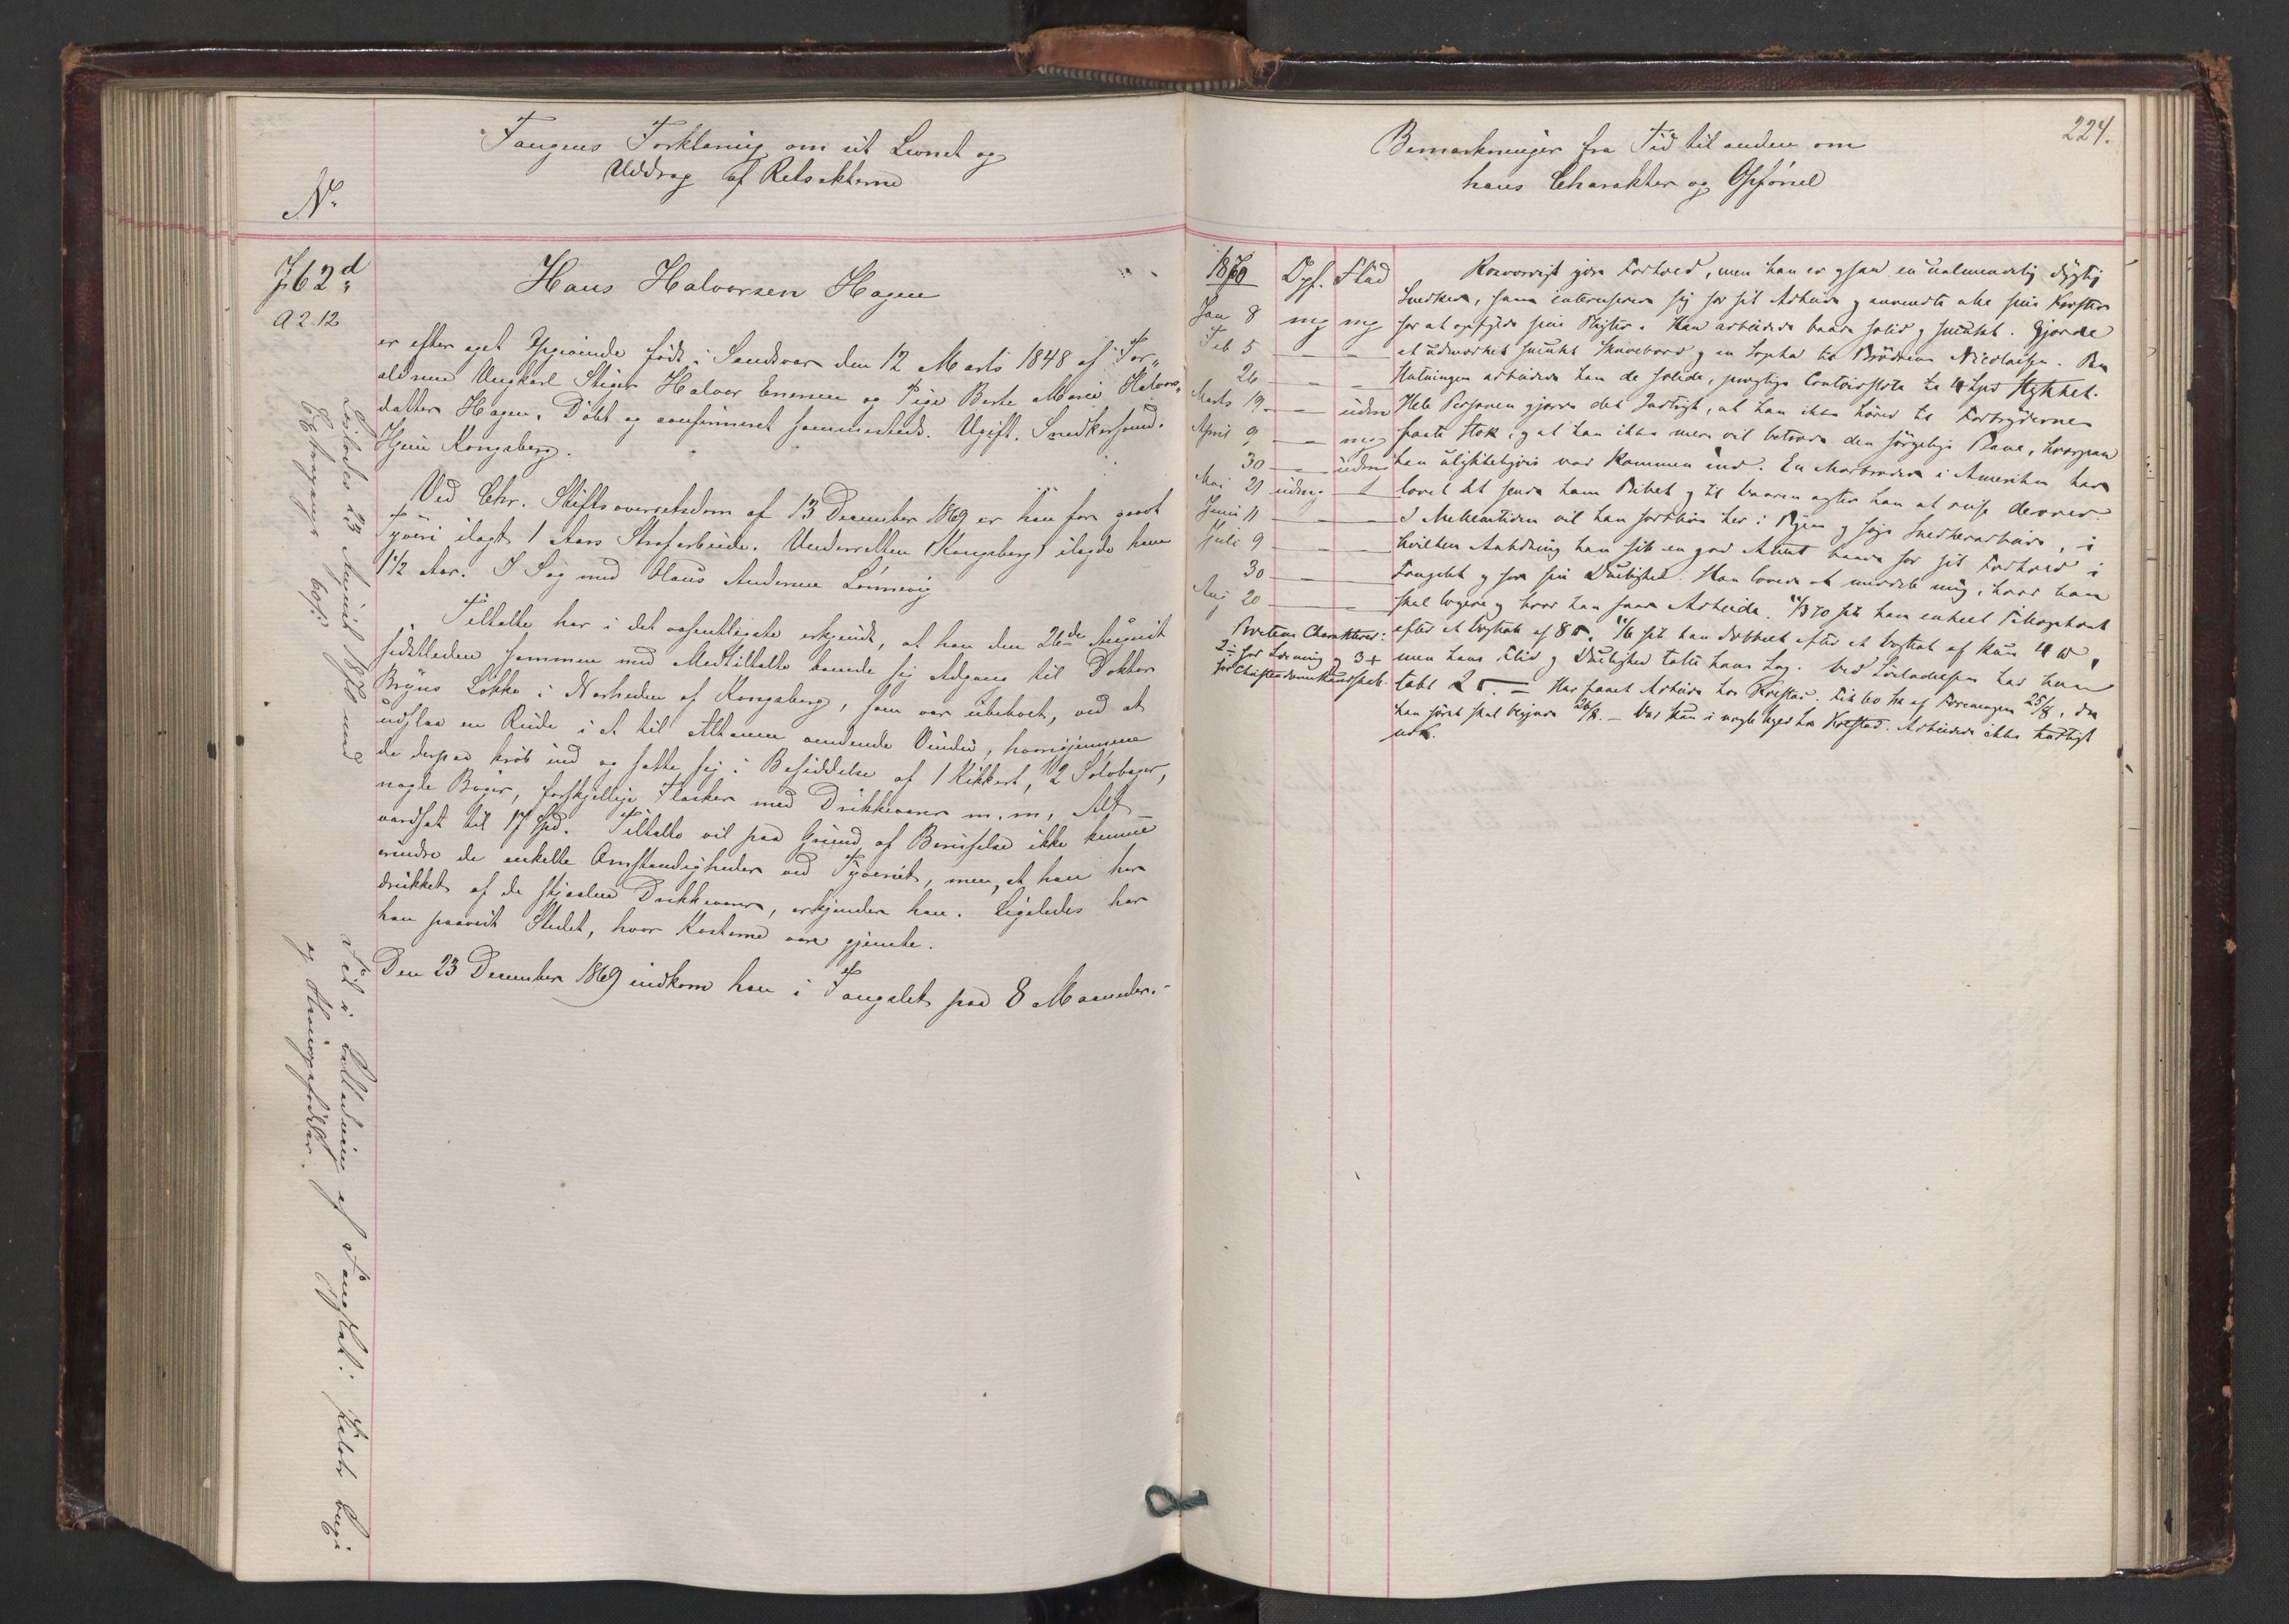 Fangens Forklaring om sit Levnet og
Uddrag af Retsakterne
No
762d
A 2.12
Hans Halvorsen Hagen
er efter eget Opgivende født i Sandsvær den 12 Marts 1848 af For-
ældrene Ungkarl Stiger Halvor Ensen og Pige Berte Marie Halvors-
datter Hagen. Døbt og confirmeret sammesteds. Ugift. Snedkersvend.
Hjem Kongsberg.
Ved Chr. Stiftsoverretsdom af 13 December 1869 er han for grovt
Tyveri ilagt 1 Aars Strafarbeide. Underretten (Kongsberg) ilagde ham
1 1/2 Aar. I Sag med Claus Andersen Lønnevig
Tiltalte har i det væsentligste erkjendt, at han den 26de August
sidstleden sammen med Medtiltalte banede sig Adgang til Doktor
Bryns Løkke i Nærheden af Kongsberg, som var ubeboet, ved at
indslaa en Rude i et til Altanen vendende Vindu, hvorigjennem
de derpaa krøb ind og satte sig i Besiddelse af 1 Kikkert, 2 Sølvbæger,
nogle Bøger, forskjellige Flasker med Drikkevarer m.m, Alt
værdsat til 17 Spd. Tiltalte vil paa Grund af Beruselse ikke kunne
erindre de enkelte Omstændigheder ved Tyveriet, men, at han har
drukket af de stjaalne Drikkevarer, erkjender han. Ligeledes har
han paavist Stedet, hvor Kosterne vare gjemte.
Den 23 December 1869 indkom han i Fangslet paa 8 Maaneder.-
Løslodes 23 August 1870 med
Feil i Beklædning af Fangsel:
224.
Bemærkninger fra Tid til anden om
hans Charakter og Opførsel
1870 Opf. Flid
Jan 8 mg mg
Feb 5 — —
26 — —
Marts 19 — — udm
April 9 — — mg
30 — — udm
Mai 21 udmg —
Juni 11 — —
Juli 9 — —
30 — —
Aug 20 — —
Præstens Charakterer:
2 for Læsning og 3+
for Christendomskundskab.
Rosværdigt godt Forhold, men han er ogsaa en ualmindelig dygtig
Snedker, som interesserer sig for sit Arbeide og anvendte alle sine Kræfter
for at opfylde sine Pligter. Han arbeidede baade solid og smukt. Gjorde
et udmærket smukt Skrivebord og en Sopha til Brødrene Nicolaisen. Paa
Slutningen arbeidede han de solide, prægtige Contoirstole til 4 Spd Stykket.
Hele Personen gjorde det tydeligt, at han ikke hører til Forbryderne
og at han ikke mere vil betræde den sørgelige Bane, hvorpaa
han ulykkeligvis var kommen ind. En Morbroder i Amerika har
lovet at sende ham Billet og til Vaaren agter han at reise derover.
I Mellemtiden vil han forblive her i Byen og søge Snedkerarbeide, i
hvilken Anledning han fik en god Attest baade for sit Forhold i
Fangslet og for sin Duelighed. Han lovede at meddele mig, hvor han
skal logere og hvor han faar Arbeide. fik han enkelt
efter et Vægttab af 8 fik han dobbelt efter et Vægttab af kun 4
men hans Flid og Duelighed talte hans Sag. Ved Løsladelsen har han
tabt 2 — Har faaet Arbeide hos Krefstad. af Foreningen 25/8, da
han først skal begynde 26/8. — Var kun i nogle Uger hos Krefstad. Arbeidede ikke hurtigt
nok.